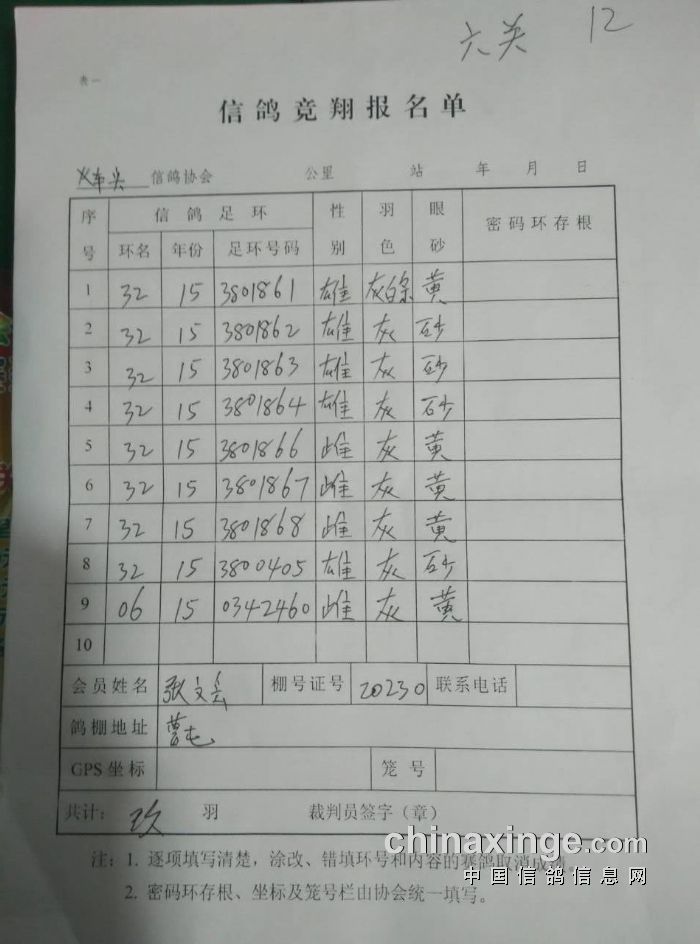 六关 12
表一
信鸽竞翔报名单
火车头 信鸽协会 公里 站 年 月 日
序号 信鸽足环 性别 羽色 眼砂 密码环存根
环名 年份 足环号码
1 32 15 3801861 雄 灰白条 黄
2 32 15 3801862 雄 灰 砂
3 32 15 3801863 雄 灰 砂
4 32 15 3801864 雄 灰 砂
5 32 15 3801866 雌 灰 黄
6 32 15 3801867 雌 灰 黄
7 32 15 3801868 雌 灰 黄
8 32 15 3800405 雄 灰 砂
9 06 15 0342460 雌 灰 黄
10
会员姓名 张文会 棚号证号 20230 联系电话
鸽棚地址 曹屯
GPS坐标 笼号
共计: 玖 羽 裁判员签字（章）
注：1. 逐项填写清楚，涂改、错填环号和内容的赛鸽取消成绩。
2. 密码环存根、坐标及笼号栏由协会统一填写。
chinaxinge.com
中国信鸽信息网